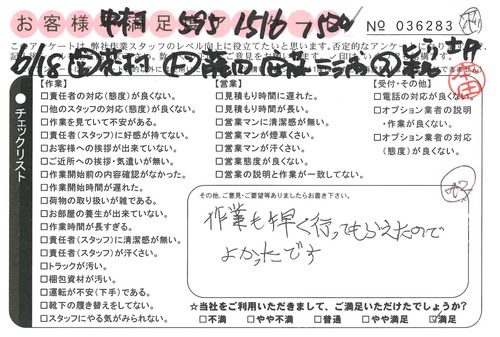 お客様満足度ア
No 036283
このアンケートは、弊社作業スタッフのレベル向上に役立てたいと思います。
チェックリスト
【作業】
□責任者の対応(態度)が良くない。
□他のスタッフの対応(態度)が良くない。
□作業を見ていて不安がある。
□責任者(スタッフ)に好感が持てない。
□お客様への挨拶が出来ていない。
□ご近所への挨拶・気遣いが無い。
□作業開始前の内容確認がなかった。
□作業開始時間が遅れた。
□荷物の取り扱いが雑である。
□お部屋の養生が出来ていない。
□作業時間が長すぎる。
□責任者(スタッフ)に清潔感が無い。
□責任者(スタッフ)が汗くさい。
□トラックが汚い。
□梱包資材が汚い。
□運転が不安(下手)である。
□靴下の履き替えをしてない。
□スタッフにやる気がみられない。
【営業】
□見積もり時間に遅れた。
□見積もり時間が長い。
□営業マンに清潔感が無い。
□営業マンが煙草くさい。
□営業マンが汗くさい。
□営業態度が良くない。
□営業の説明と作業が一致してない。
【受付・その他】
□電話の対応が良くない。
□オプション業者の説明
・作業が良くない。
□オプション業者の対応
(態度)が良くない。
その他、ご意見・ご要望等ありましたらお書き下さい。
作業も早く行ってもらえたので
よかったです
☆当社をご利用いただきまして、ご満足いただけたでしょうか?
□不満 □やや不満 □普通 □やや満足 ☑満足